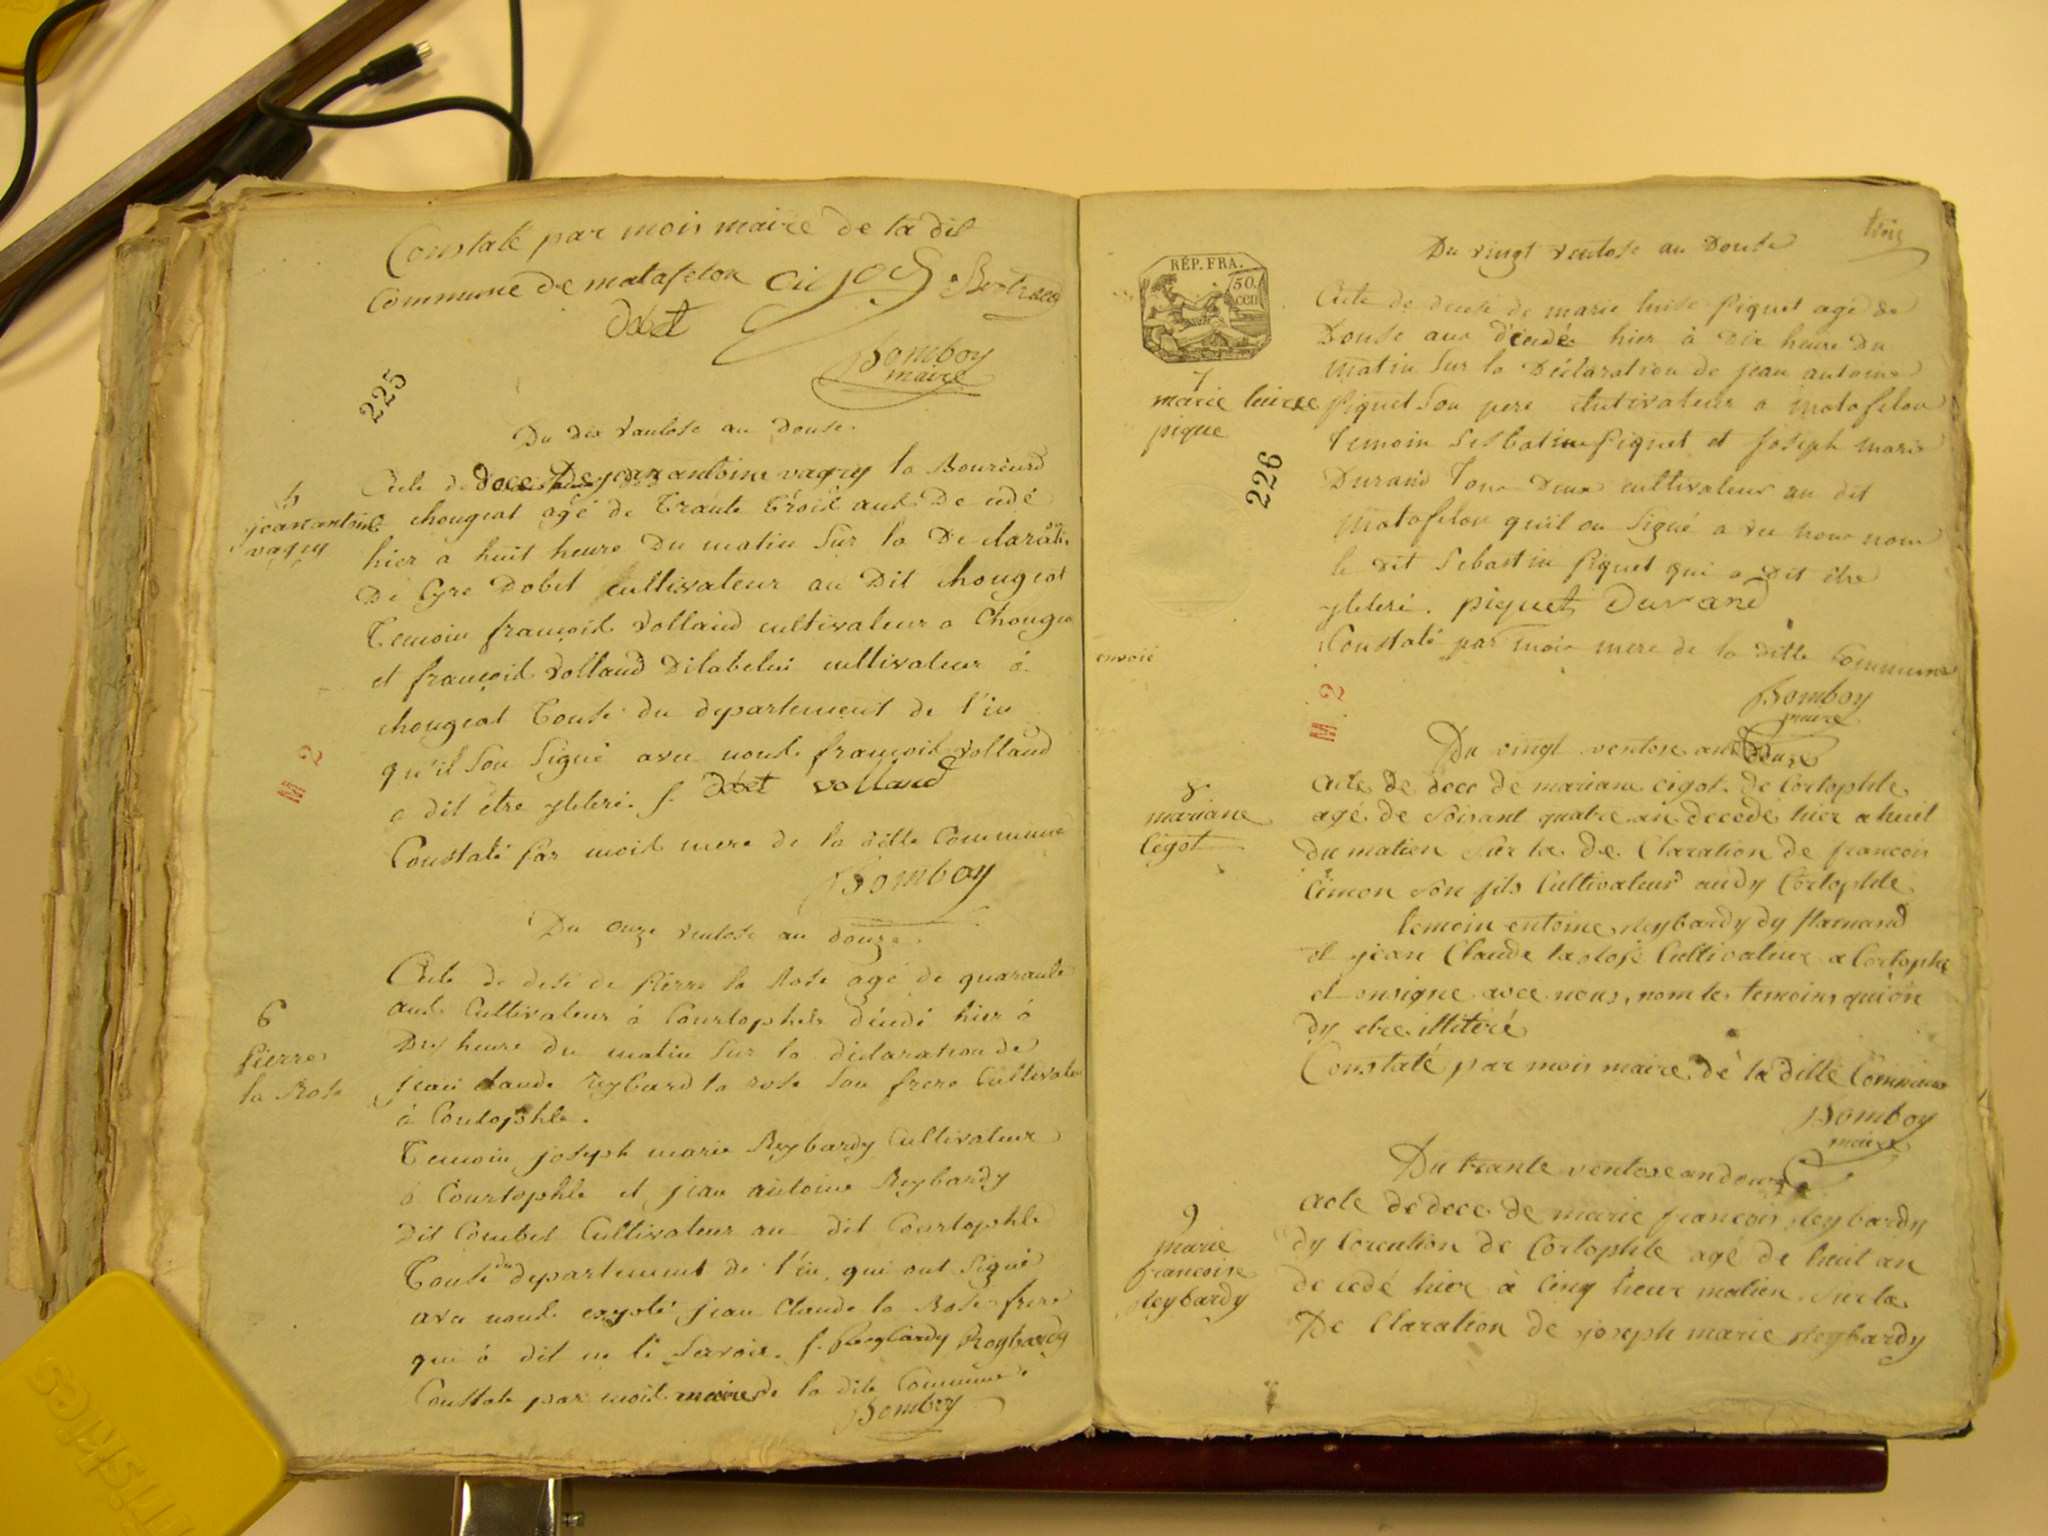 Constaté par mois maire de la dit
Commune de matafelon Cijod Bertrand
Dobet
Bomboy
maire
225
Du dix vantose an douse.
5
jean antoine
vagry
Acte de doces De jean antoine vagry la
chougeat agé de Trante trois ans De cedé
hier a huit heure Du matin sur la De claration
De Cyre Dobet cultivateur au Dit chougeat
Temoin françois Volland cultivateur a Chougea
et françois Volland cultivateur à
chougeat Touse du departement de l'in
qu'il son signé avec nous françois Volland
a dit être yleteré. f. Dobet volland
Constaté par mois mere de la ditte Commune
Bomboy
M. 2
Du onze ventose an douze.
6
Pierre
la Rose
Acte de desé de Pierre la Rose agé de quarante
ans Cultivateur à Courtophle décédé hier à
Dix heure du matin sur la déclaration de
jean claude Reybard la rose son frere Cultivate
à Courtophle.
Temoin joseph marie Reybardy Cultivateur
à Courtophle et jean antoine Reybardy
dit Combet Cultivateur au dit Courtophle
Touse du departement de l'in, qui ont signé
avec nous exsepté jean Claude la Rose frere
qui à dit ne le savoir. f. Reybardy Reybardy
Constate par mois maire de la dite Commune
Bomboy
RÉP. FRA.
50.
cen
Du vingt ventose an Douse
7
marie luice
pique
226
Acte de desé de marie luise Piquet agé de
Douse ans décédé hier à dix heure Du
matin sur la Déclaration de jean antoine
Piquet son pere Cultivateur a matafelon
Temoin Sesbatien Piquet et Joseph marie
Durand Tous Deux cultivateur au dit
Matafelon quil on signé a vec nous non
le dit Sebastin Piquet qui a dit être
yleteré. piquet Durand
Constaté par mois mere de la ditte Commune
Bomboy
maire
envoié
M. 2
Du vingt ventose an Douze
8
mariane
Cigot
acte de dece de mariane cigot de Cortophle
agé de soisant quatre an decedé hier a huit
du matien sur la de Claration de francois
son fils Cultivateur audy Cortophle
temoin entoine Reybardy dy flamand
et jean Claude la rose Cultivateur a Cortophle
et onsigne avec nous, nom les temoins quion
dy etre illiteré
Constaté par mois maire de la ditte Commune
Bomboy
maire
Du trante ventose an douze
9
marie
francoise
Reybardy
acte de dece de marie francois Reybardy
dy de Cortophle agé de huit an
de cedé hier à cinq heure matien sur la
De Claration de joseph marie Reybardy